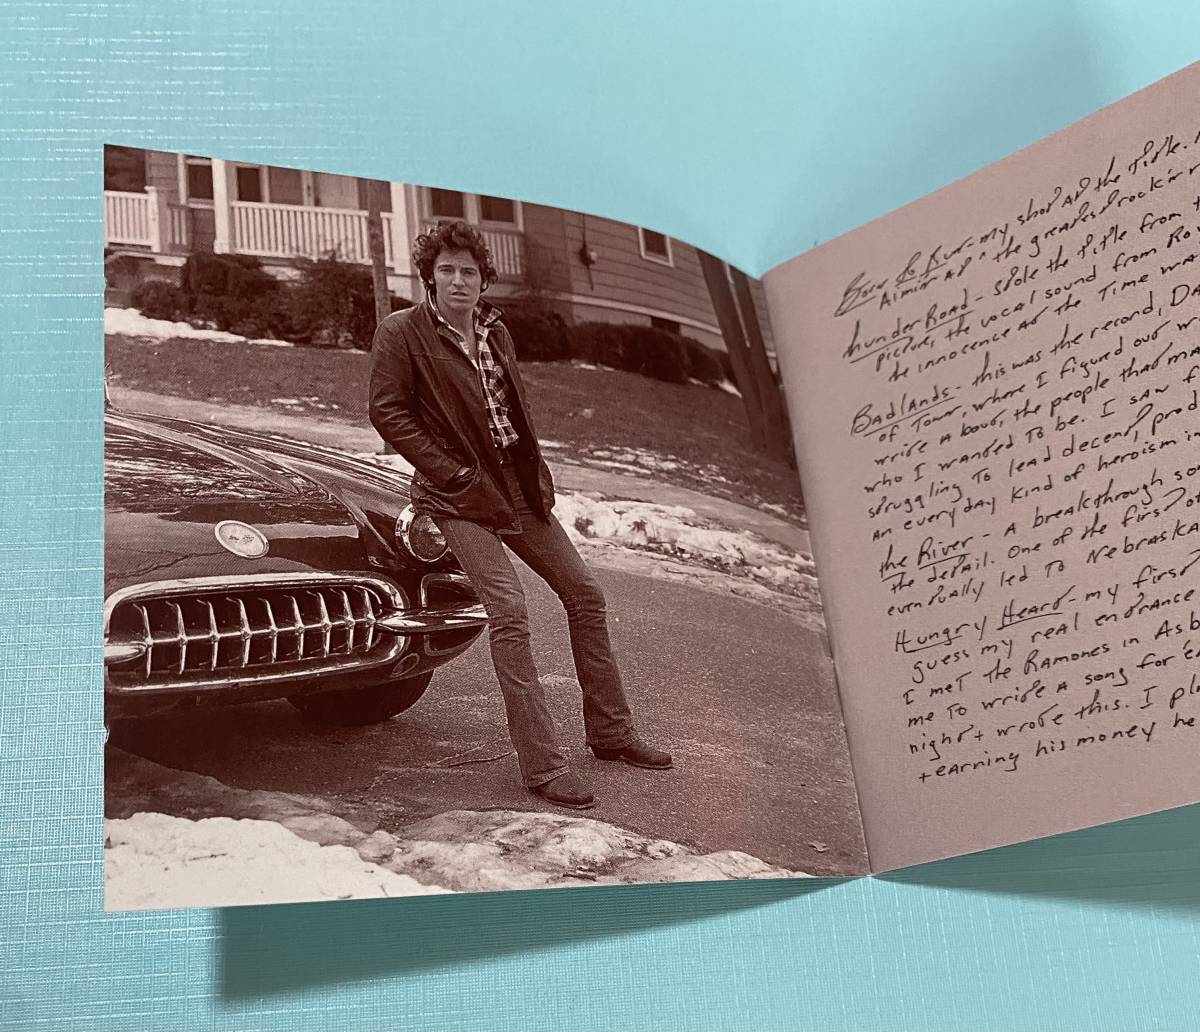 Born to Run - my shot at the title. A
Aimin' at "the greatest rock'n r
thunder Road - stole the title from t
picture, the vocal sound from Roy
the innocence at the time wa
Badlands - this was the record, Da
of Town, where I figured out w
write about, the people that ma
who I wanted to be. I saw f
struggling to lead decent, prod
an everyday kind of heroism in
the River - A breakthrough so
the detail. One of the first o
eventually led to Nebraska
Hungry Heart - my first
guess my real entrance
I met the Ramones in Asb
me to write a song for 'e
night + wrote this. I pl
+ earning his money he